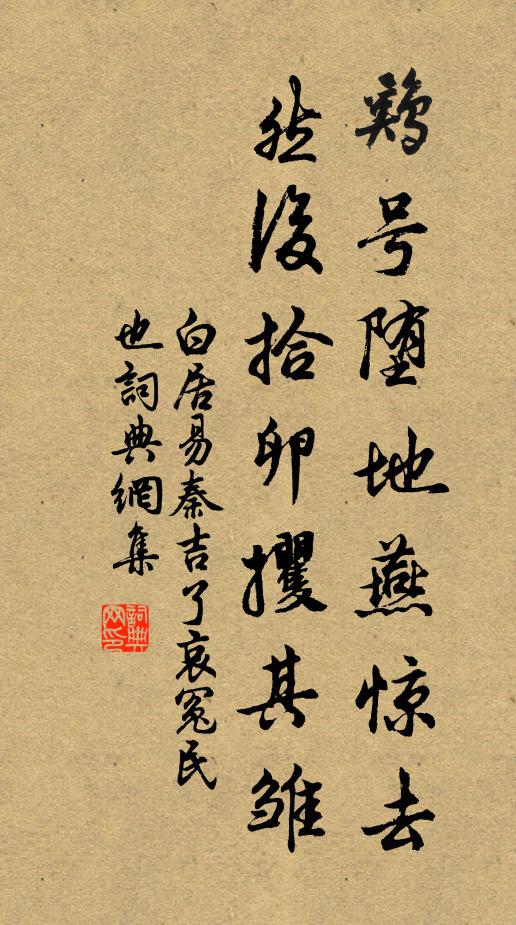 鷄号堕地燕惊去
然后拾卵攫其雏
白居易秦吉了哀冤民
也詞典網集
詞典網印